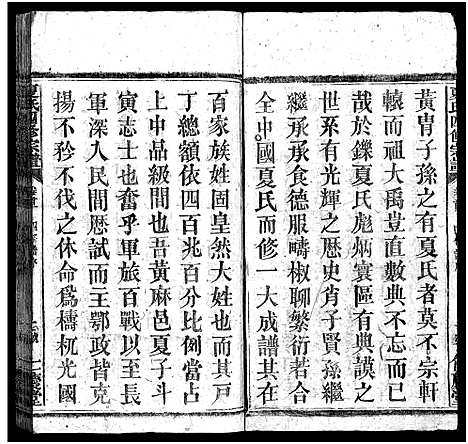 黃胄子孫之有夏氏者莫不宗軒
轅而祖大禹豈直數典不忘而已
哉於鑠夏氏彪炳寰區有典謨之
世系有光輝之歷史肖子賢孫繼
繼承承食德服疇椒聊繁衍若合
全中國夏氏而修一大成譜則在
百家族姓固皇然大姓也而其戶
丁總額依四兆百分比例當占
上中品也吾黃麻邑夏子斗
寅志士也奮乎軍旅百戰以至長
軍深入民間歷試王鄂政皆南
揚不矜不伐之休命爲檮杌光國
夏氏四修宗譜